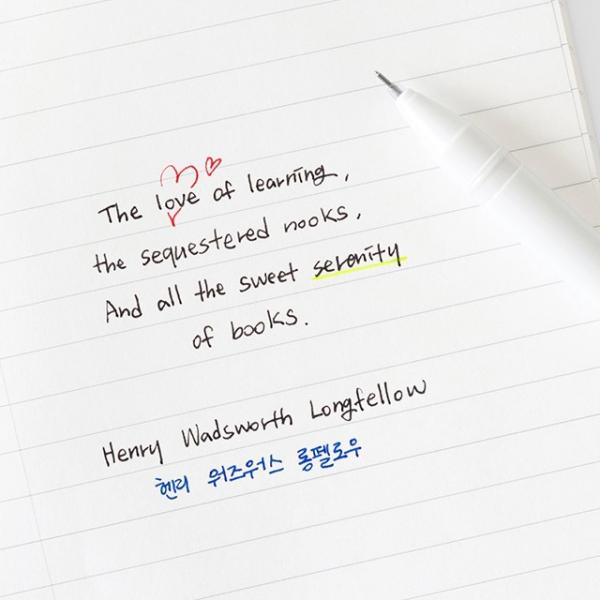 The love of learning,
the sequestered nooks,
And all the sweet serenity
of books.
Henry Wadsworth Longfellow
헨리 워즈워스 롱펠로우